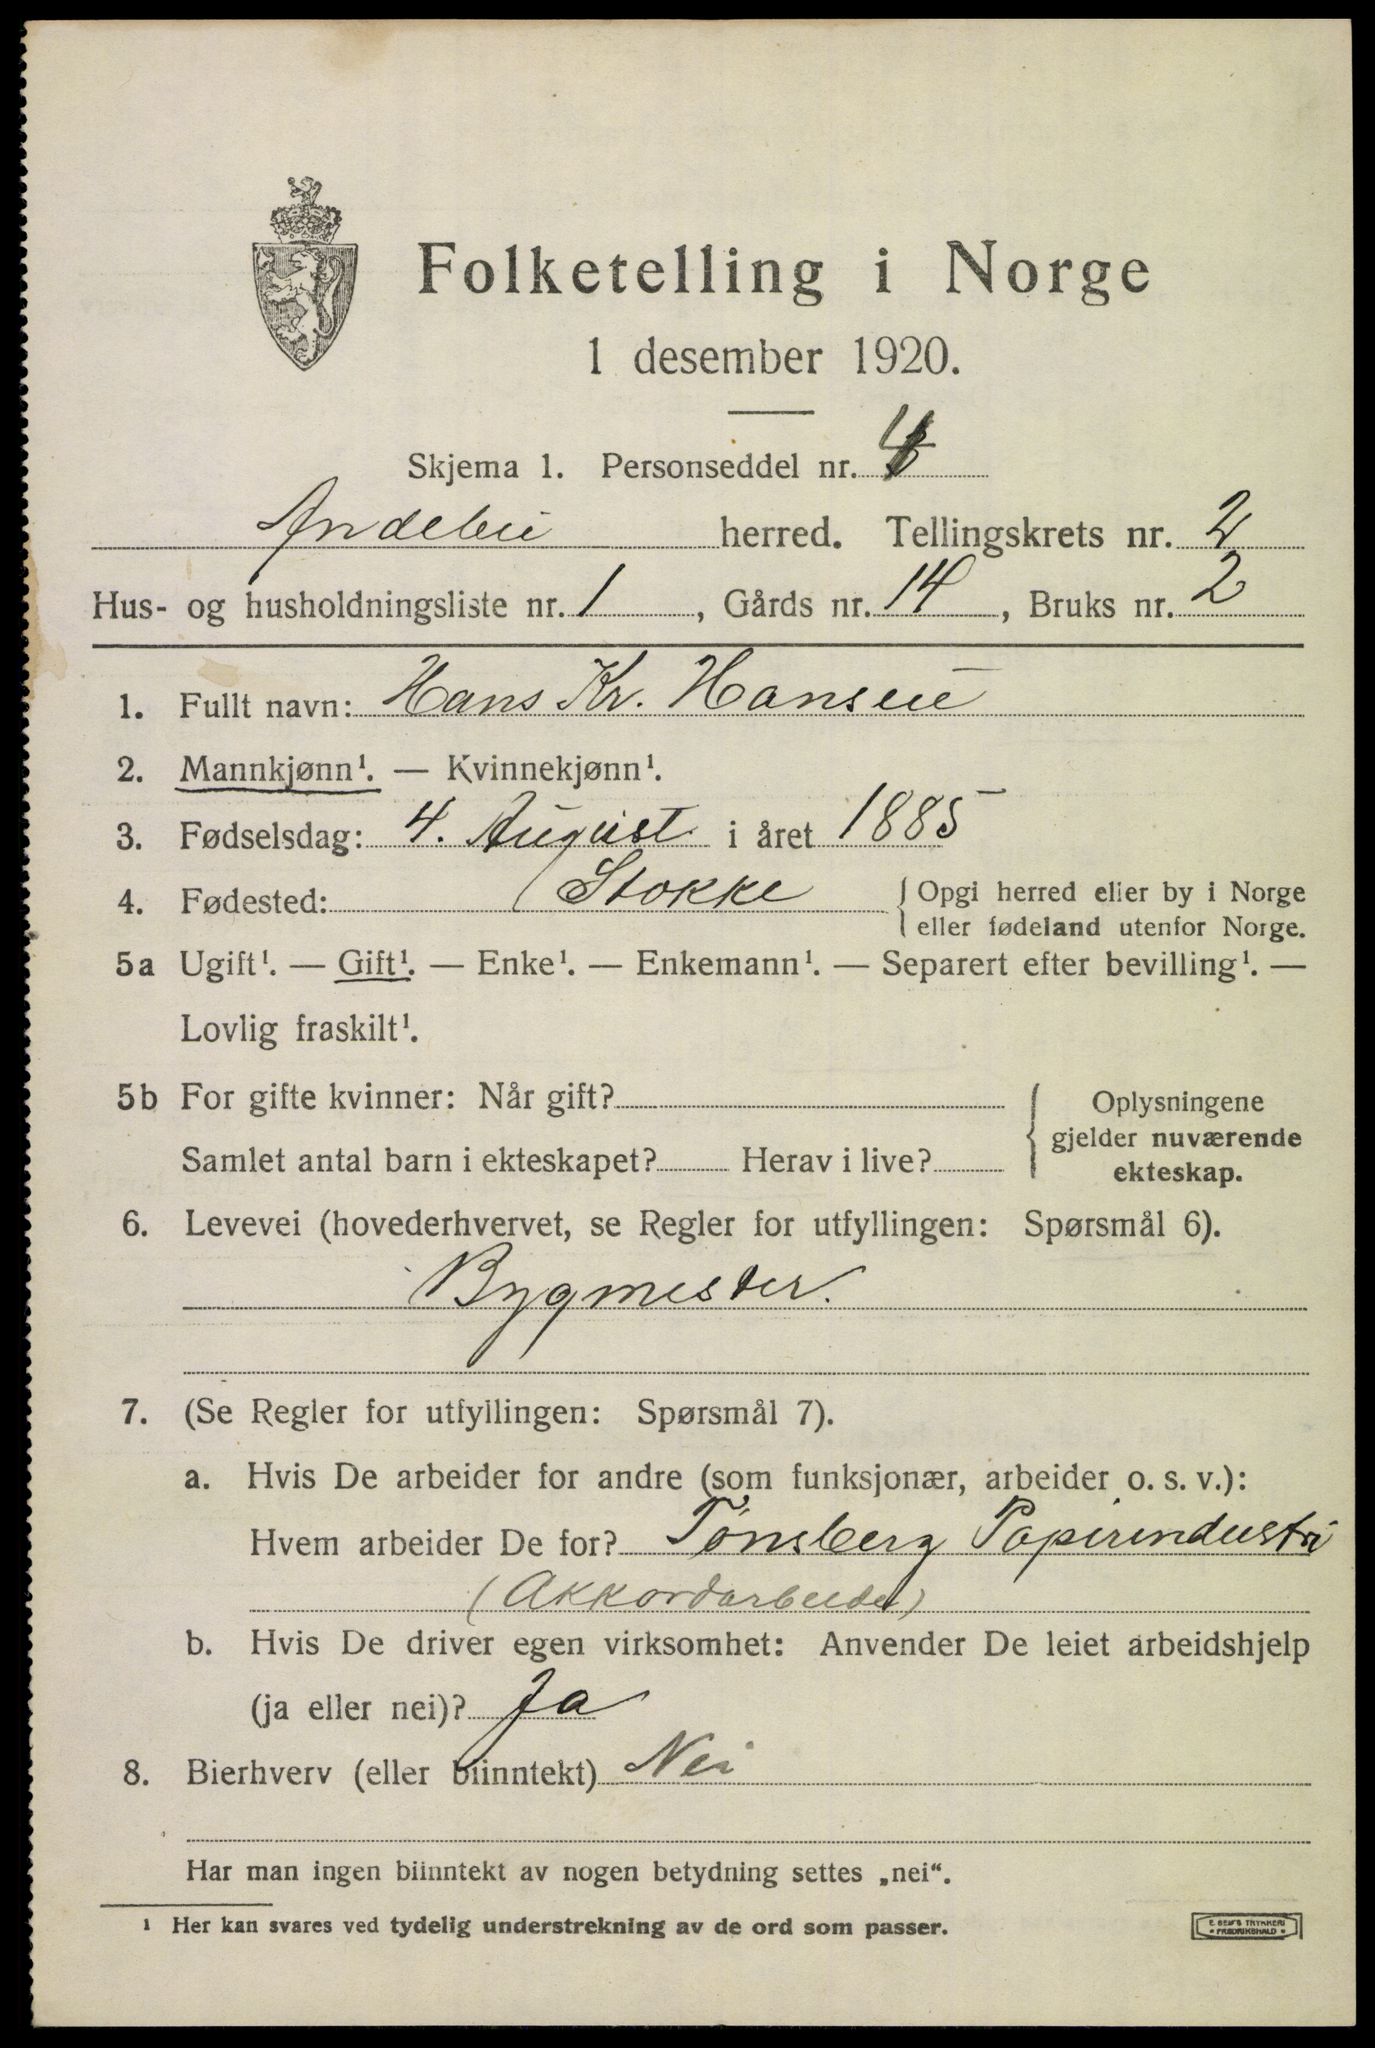 Folketelling i Norge
1 desember 1920.
Skjema 1. Personseddel nr. 4
Andebu herred. Tellingskrets nr. 2
Hus- og husholdningsliste nr. 1, Gårds nr. 14, Bruks nr. 2
1. Fullt navn: Hans Kr. Hansen
2. Mannkjønn¹. — Kvinnekjønn¹.
3. Fødselsdag: 4. August i året 1885
4. Fødested: Stokke { Opgi herred eller by i Norge
eller fødeland utenfor Norge.
5a Ugift¹. — Gift¹. — Enke¹. — Enkemann¹. — Separert efter bevilling¹. —
Lovlig fraskilt¹.
5b For gifte kvinner: Når gift?
Samlet antal barn i ekteskapet? Herav i live?
Oplysningene
gjelder nuværende
ekteskap.
6. Levevei (hovederhvervet, se Regler for utfyllingen: Spørsmål 6).
Bygmester.
7. (Se Regler for utfyllingen: Spørsmål 7).
a. Hvis De arbeider for andre (som funksjonær, arbeider o. s. v.):
Hvem arbeider De for? Tønsberg Papirindustri
(Akkordarbeider)
b. Hvis De driver egen virksomhet: Anvender De leiet arbeidshjelp
(ja eller nei)? Ja
8. Bierhverv (eller biinntekt) Nei
Har man ingen biinntekt av nogen betydning settes „nei“.
¹ Her kan svares ved tydelig understrekning av de ord som passer.
E. SEM'S TRYKKERI
* FREDRIKSHALD *